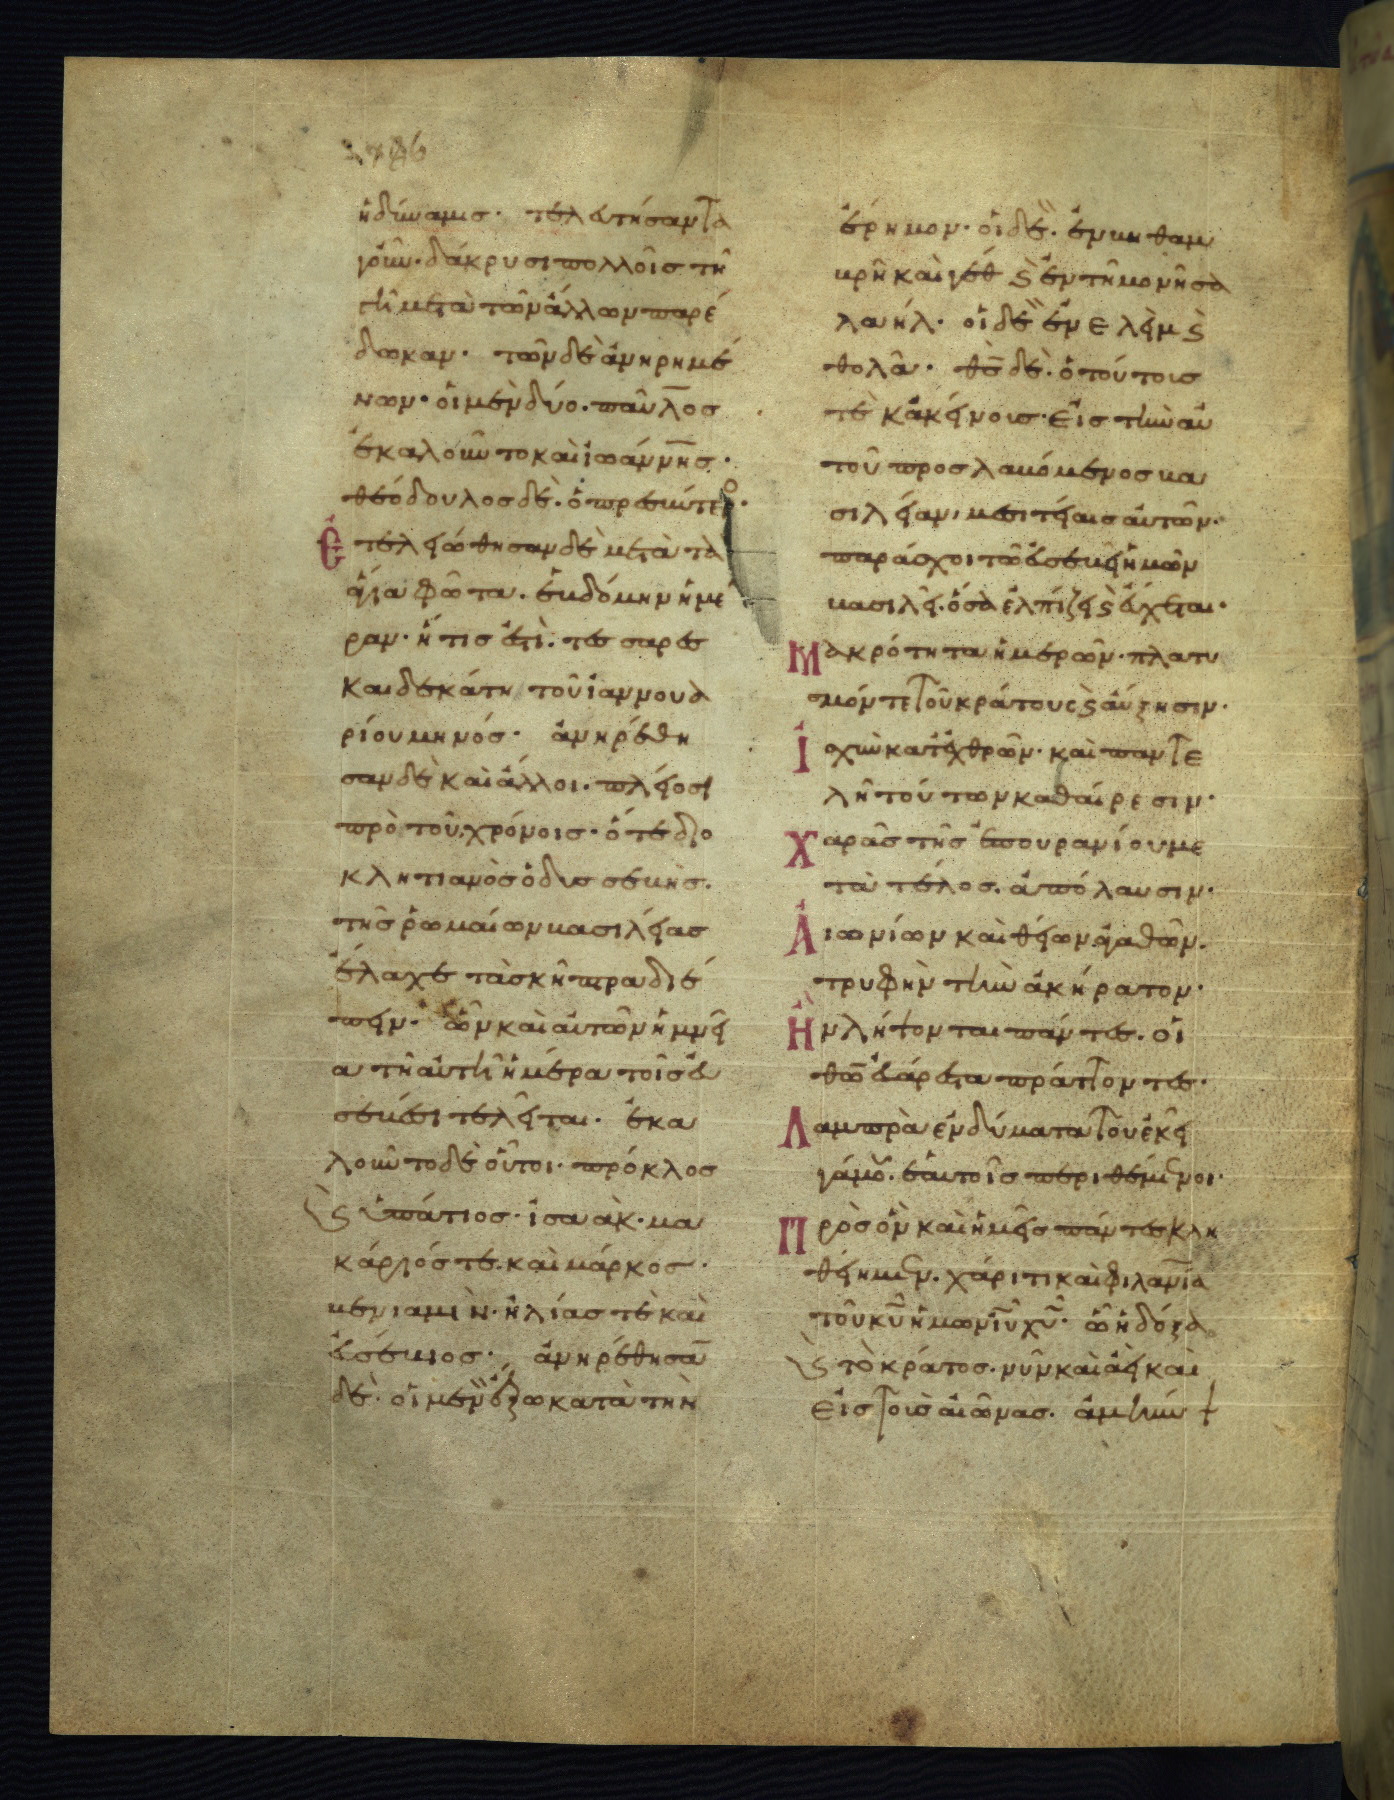 ἡ δύναμις· τελευτήσαντα
γοῦν· δάκρυσι πολλοῖς τῆ
γῆ μετὰ τῶν ἄλλων παρέ
δωκαν· τῶν δὲ ἀνηρημέ
νων· οἱ μὲν δύο· παῦλος
ἐκαλοῦντο καὶ ἰωάννης·
θεόδουλος δὲ· ὁ πρεσβύτερο·
Ἐτελειώθησαν δὲ μετὰ τὰ
ἅγια φῶτα· ἑβδόμην ἡμέ
ραν· ἥτις ἐστὶ· τεσσαρεσ
καιδεκάτη τοῦ ἰαννουα
ρίου μηνός· ἀνηρέθη
σαν δὲ καὶ ἄλλοι· πλείοσι
πρὸ τοῦ χρόνοις· ὅτε διο
κλητιανὸς ὁ δυσσεβὴς·
τῆς ῥωμαίων βασιλείας
ἔλαχε τὰ σκῆπτρα διέ
πειν· ὧν καὶ αὐτῶν ἡ μνεί
α τῆ αὐτῆ ἡμέρα τοῖς εὐ
σεβέσι τελεῖται· ἐκα
λοῦντο δὲ οὗτοι· πρόκλος
ϗ ὑπάτιος· ἰσαὰκ· μα
κάριός τε· καὶ μάρκος·
βενιαμὶν· ἠλίας τὲ καὶ
εὐσέβιος· ἀνηρέθησαν
δὲ· οἱ μὲν ἔξω κατὰ τὴν
ἔρημον· οἱ δὲ· ἐν βηθαμ
βρῆ καὶ γέθ ϗ ἐν τῆ μονῆ σα
λαήλ· οἱ δὲ ἐν ελὲμ ϗ
θολᾶ· θς δὲ· ὁ τούτοις
τὲ κἀκείνοις· εἰς τὴν αὐ
τοῦ προσλαβόμενος βα
σιλείαν, μεσιτείαις αὐτῶν·
παράσχοι τῶ εὐσεβεῖ ἡμῶν
βασιλεῖ· ὅσα ἐλπίζει ϗ εὔχεται·
Μακρότητα ἡμερῶν· πλατυ
σμόν τε τοῦ κράτους ϗ αὔξησιν·
Ἰσχὺν κατ' ἐχθρῶν· καὶ παντε
λῆ τούτων καθαίρεσιν·
Χαρᾶς τῆς ἐπουρανίου με
τὰ τέλος· ἀπόλαυσιν·
Αἰωνίων καὶ θείων ἀγαθῶν·
τρυφὴν τὴν ἀκήρατον·
Ἣν λήψονται πάντες· οἱ
θῶ εὐάρεστα πράττοντες·
Λαμπρὰ ἐνδύματα τοῦ ἐκεῖ
γάμου· ἑαυτοῖς περιθέμενοι·
Πρὸς ὃν καὶ ἡμεῖς πάντες κλη
θείημεν· χάριτι καὶ φιλανία
τοῦ κῦ ἡμῶν ἰῦ χῦ· ὧ ἡ δόξα
ϗ τὸ κράτος· νῦν καὶ ἀεὶ καὶ
εἰς τοὺς αἰῶνας· ἀμήν †